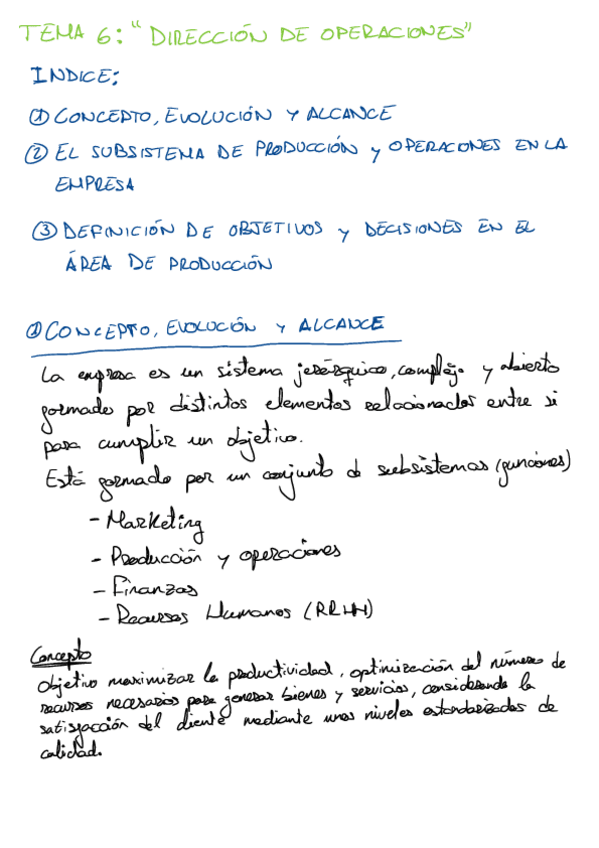 TEMA 6: "DIRECCIÓN DE OPERACIONES"
INDICE:
① CONCEPTO, EVOLUCIÓN Y ALCANCE
② EL SUBSISTEMA DE PRODUCCIÓN y OPERACIONES EN LA
EMPRESA
③ DEFINICIÓN DE OBJETIVOS y DECISIONES EN EL
ÁREA DE PRODUCCIÓN
① CONCEPTO, EVOLUCIÓN Y ALCANCE
La empresa es un sistema jerárquico, complejo y abierto
formado por distintos elementos relacionados entre si
para cumplir un objetivo.
Está formado por un conjunto de subsistemas (funciones)
- Marketing
- Producción y operaciones
- Finanzas
- Recursos Humanos (RRHH)
Concepto
Objetivo maximizar la productividad, optimización del número de
recursos necesarios para generar bienes y servicios, considerando la
satisfacción del cliente mediante unos niveles estandarizados de
calidad.